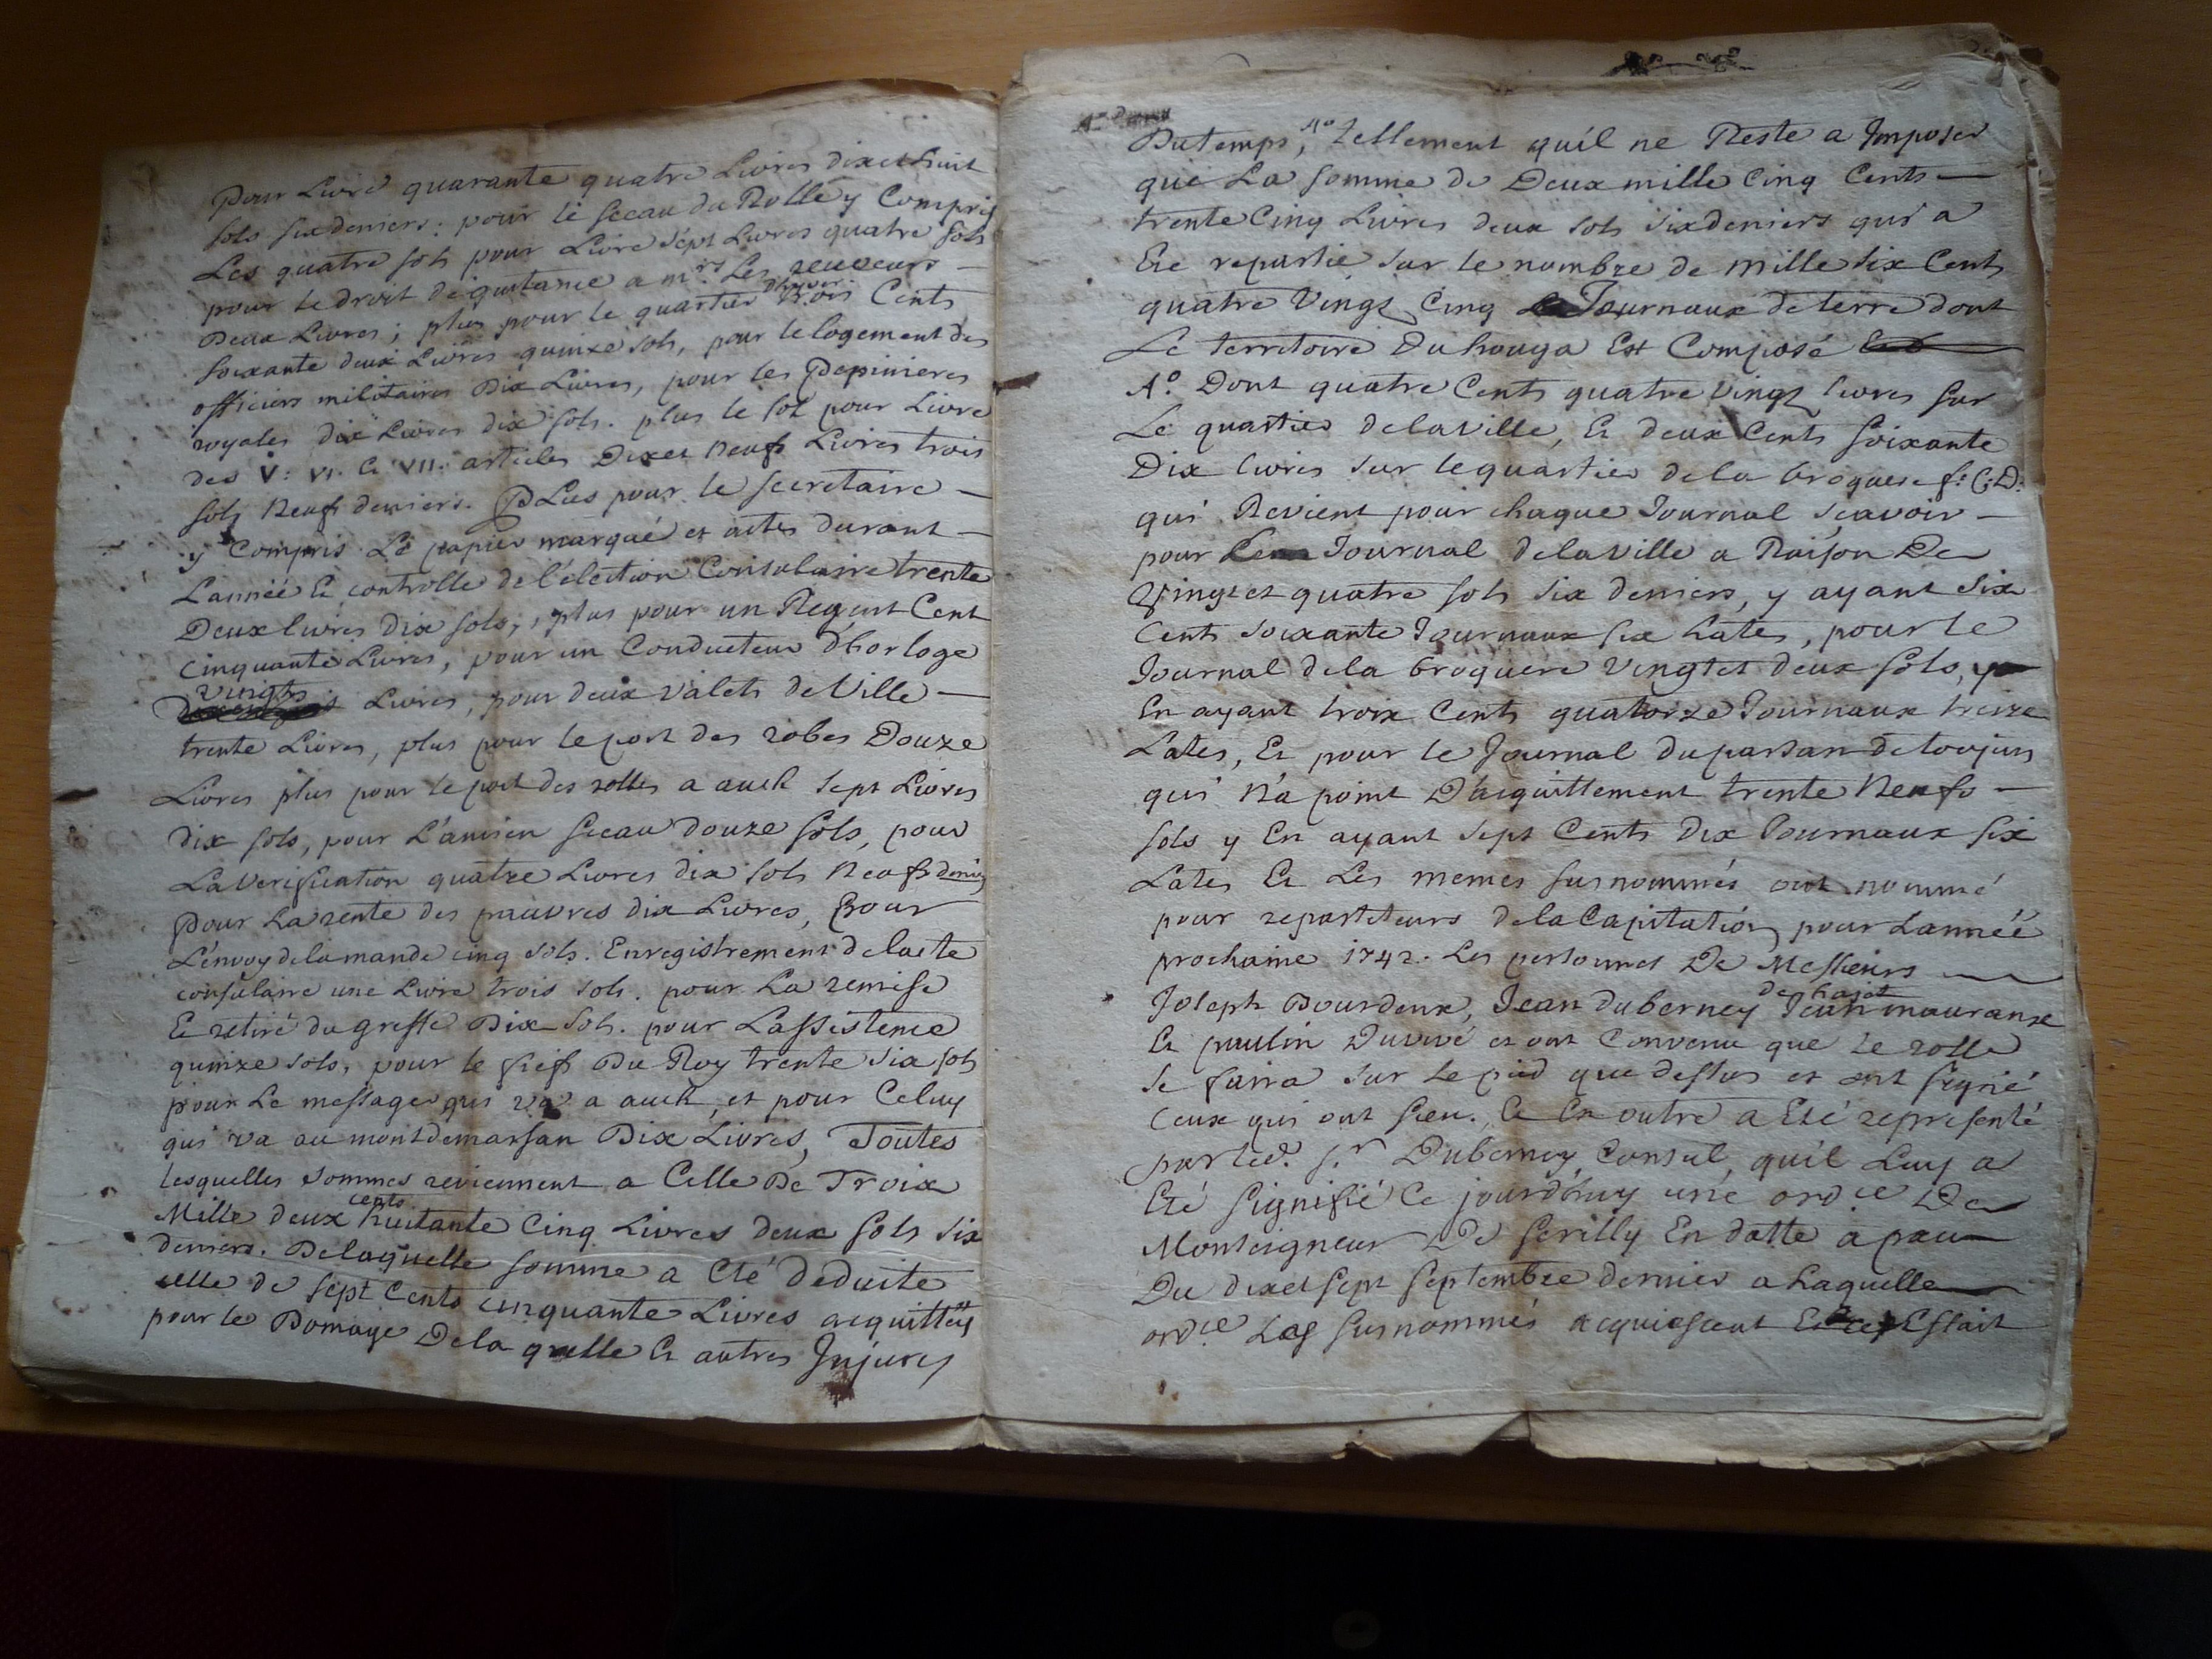 Pour Livre quarante quatre Livres dix et huit
sols six deniers: pour le sceau du Rolle y Compris
Les quatre sols pour Livre sept Livres quatre sols
pour le droit de quitance a mrs Les receveurs —
Deux Livres; plus pour le quartier dhyver trois Cents
soixante deux Livres quinze sols, pour le logement des
officiers militaires Dix Livres, pour les Pepinieres
royales dix Livres dix sols. plus le sol pour Livre
des V: VI. & VII. articles Dix et neufs Livres trois
sols neufs deniers. PLus pour le secretaire —
y Compris Le papier marqué et actes durant —
L'année & controlle de l'election Consulaire trente
Deux livres dix sols, plus pour un Regent Cent
cinquante Livres, pour un Conducteur d'horloge
vingts Livres, pour deux valets de Ville —
trente Livres, plus pour le port des robes Douze
Livres plus pour le port des rolles a auch sept Livres
dix sols, pour L'ancien sceau douze sols, pour
La verification quatre Livres dix sols neufs deniers
Pour La rente des pauvres dix Livres, Pour
L'envoy de la mande cinq sols. Enregistrement de lacte
consulaire une Livre trois sols. pour La remise
& retiré du greffe Dix sols. pour Lassistence
quinze sols, pour le fiefs Du Roy trente six sols
pour Le messager qui va a auch, et pour Celuy
qui va au montdemarsan Dix Livres, Toutes
lesquelles sommes reviennent a Celle De Troix
Mille deux cents huitante Cinq Livres deux sols six
deniers. De laquelle somme a Eté deduite
celle de sept Cents cinquante Livres acquittés
pour le Domage De la grelle & autres Injures
Du temps, tellement qu'il ne Reste a Imposer
que La somme de Deux mille Cinq Cents —
trente Cinq Livres deux sols six deniers qui a
Eté repartie sur le nombre de mille six Cents
quatre Vingt Cinq Journaux de terre dont
Le territoire Du houga Est Composé
A.o Dont quatre Cents quatre Vingt livres sur
Le quartier de la Ville, & deux Cents soixante
Dix livres sur le quartier de la broquere
qui Revient pour chaque Journal scavoir —
pour Journal de la Ville a Raison De
Vingt et quatre sols six deniers, y ayant six
Cents soixante Journaux six Lates, pour le
Journal de la broquere vingt et deux sols,
En ayant troix Cents quatorze Journaux treize
Lates, & pour le Journal du parsan de toujun
qui n'a point D'acquittement trente Neufs —
sols y En ayant sept Cents Dix Journaux six
Lates & Les memes susnommés ont nommé
pour repartiteurs de la Capitation pour Lannéé
prochaine 1742. Les personnes De Messieurs
Joseph Dourdeux, Jean duberney de hajet Jean mauranx
& paulin Duvivé et ont Convenu que Le rolle
se faira sur Le pied que dessus et ont signé
ceux qui ont sceu. & En outre a Eté representé
par led. s.r Duberney, Consul, quil Luy a
Eté signifié Ce jourd'huy une ord.ce De
Monseigneur De serilly En datte a pau
Du dix et sept septembre dernier a Laquelle
ord.ce Les susnommés acquiescent Estait